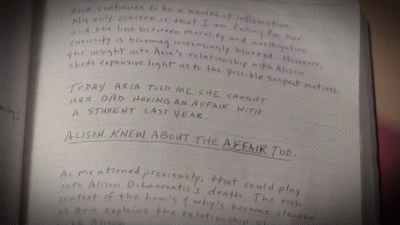 Aria continues to be a wealth of information.
My only concern is that I am falling for her
and the line between morality and investigative
curiosity is becoming increasingly blurred. However,
the insight into Aria's relationship with Alison
sheds expansive light as to the possible suspect motives.
TODAY ARIA TOLD ME SHE CAUGHT
HER DAD HAVING AN AFFAIR WITH
A STUDENT LAST YEAR.
ALISON KNEW ABOUT THE AFFAIR TOO.
As mentioned previously, that could play
into Alison DiLaurentis's death. The rich
context of the how's & why's become clearer
as Aria explains the relationship